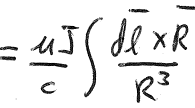 = μJ/c ∫ dℓ̄ × R̄ / R³